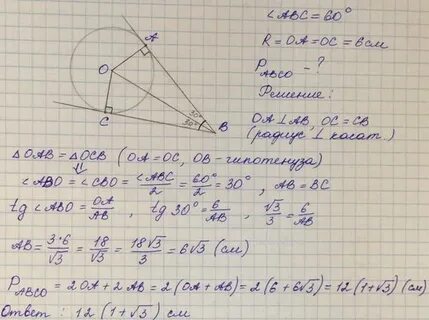 ∠ABC = 60°
R = OA = OC = 6 см
P_ABCO - ?
Решение:
OA ⊥ AB, OC = CB
(радиус ⊥ касат.)
A
O
C
B
30°
30°
△OAB = △OCB (OA = OC, OB - гипотенуза)
⇓
∠ABO = ∠CBO = ∠ABC/2 = 60°/2 = 30°, AB = BC
tg ∠ABO = OA/AB, tg 30° = 6/AB, √3/3 = 6/AB
AB = 3·6/√3 = 18/√3 = 18√3/3 = 6√3 (см)
P_ABCO = 2OA + 2AB = 2(OA + AB) = 2(6 + 6√3) = 12(1+√3) (см)
Ответ: 12(1+√3) см